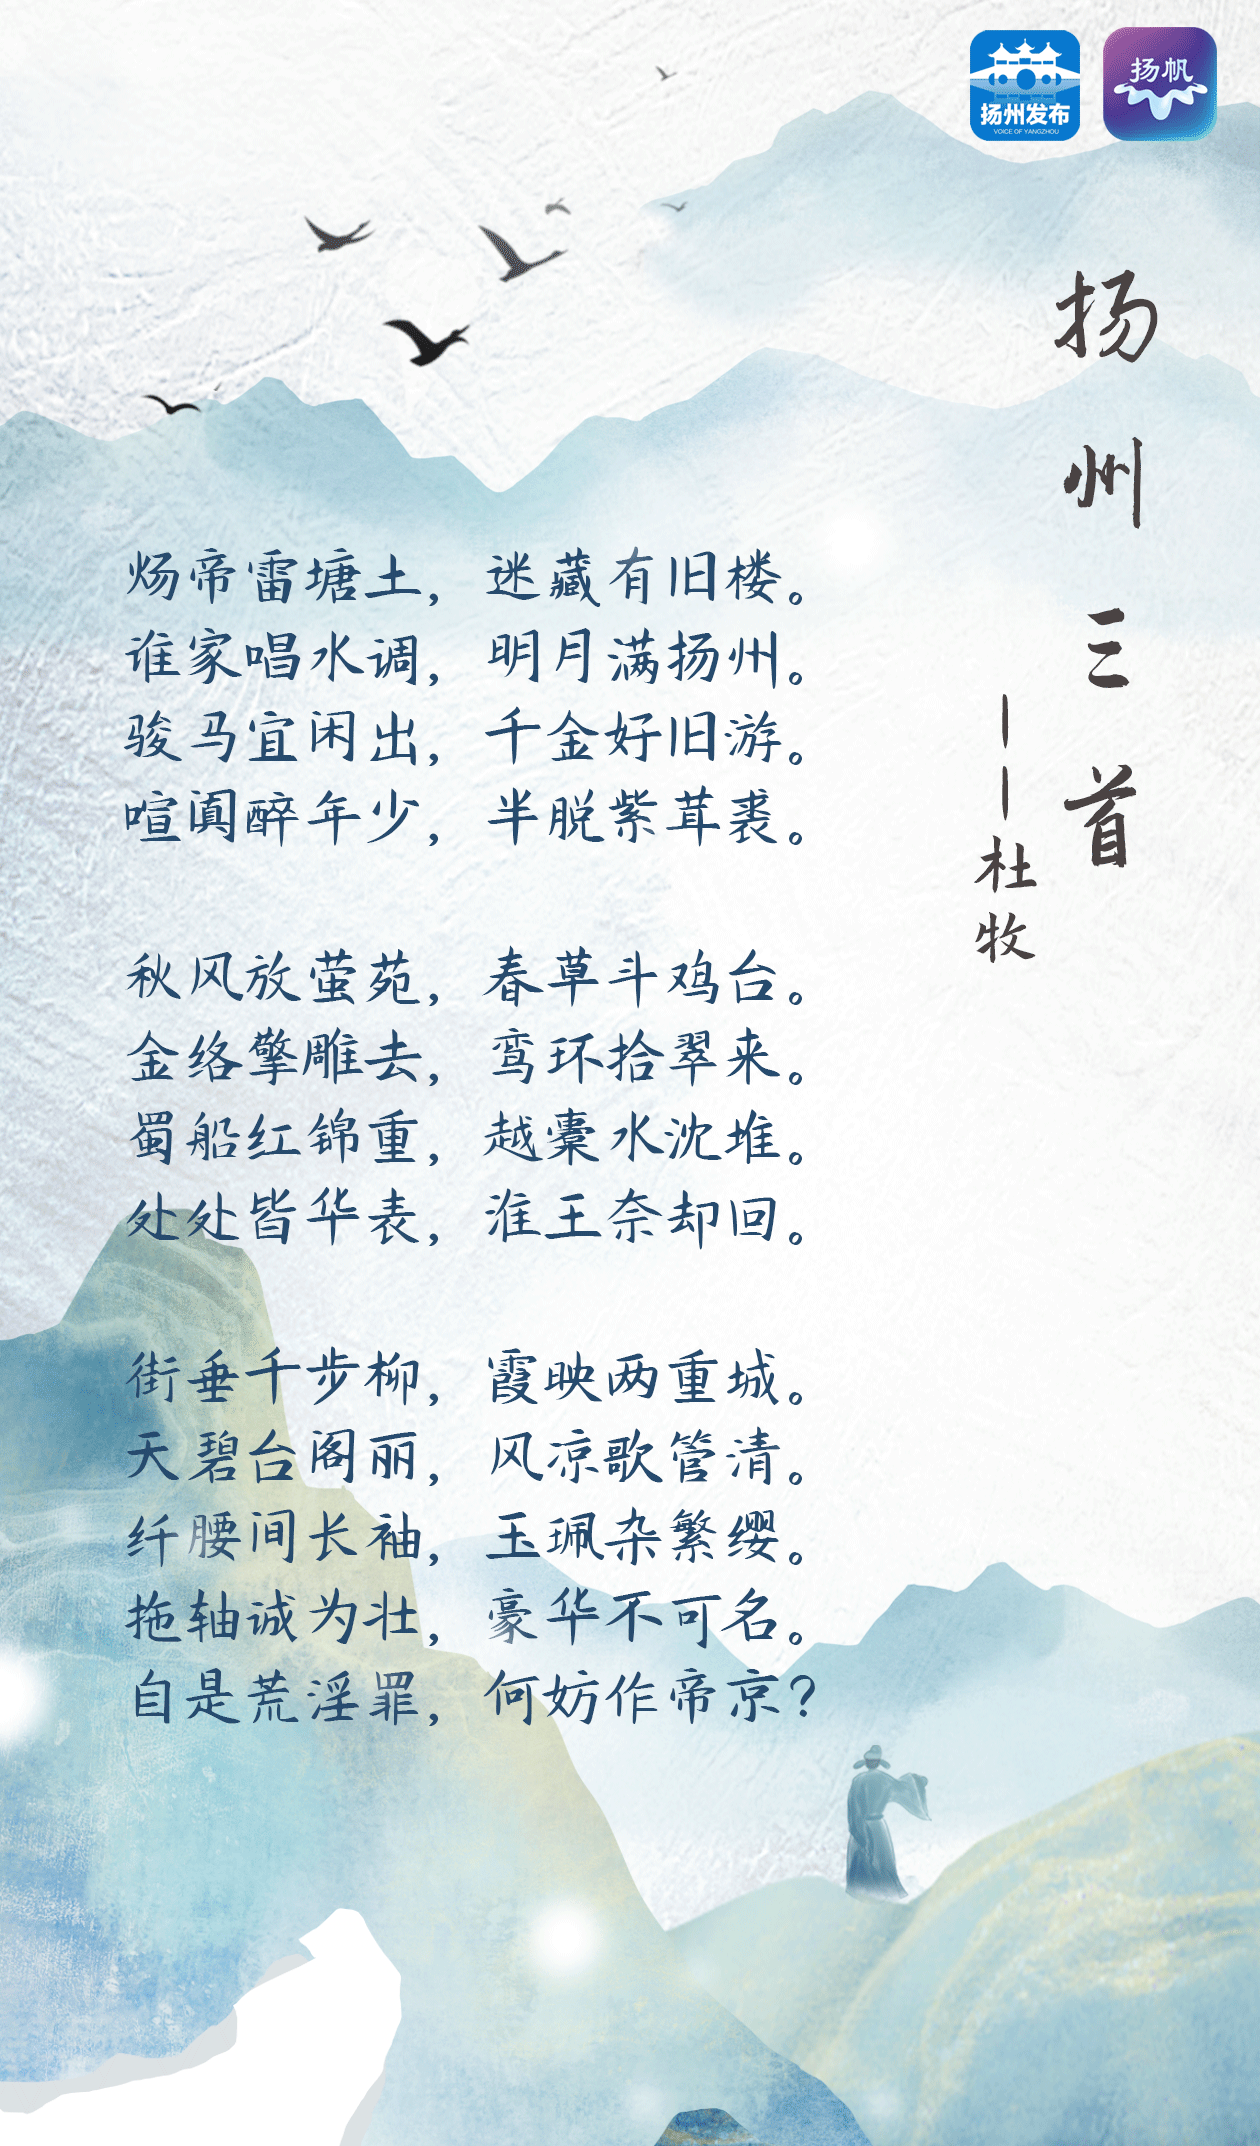 扬州发布
VOICE OF YANGZHOU
扬帆
扬州三首
——杜牧
炀帝雷塘土，迷藏有旧楼。
谁家唱水调，明月满扬州。
骏马宜闲出，千金好旧游。
喧阗醉年少，半脱紫茸裘。
秋风放萤苑，春草斗鸡台。
金络擎雕去，鸾环拾翠来。
蜀船红锦重，越橐水沈堆。
处处皆华表，淮王奈却回。
街垂千步柳，霞映两重城。
天碧台阁丽，风凉歌管清。
纤腰间长袖，玉珮杂繁缨。
拖轴诚为壮，豪华不可名。
自是荒淫罪，何妨作帝京？